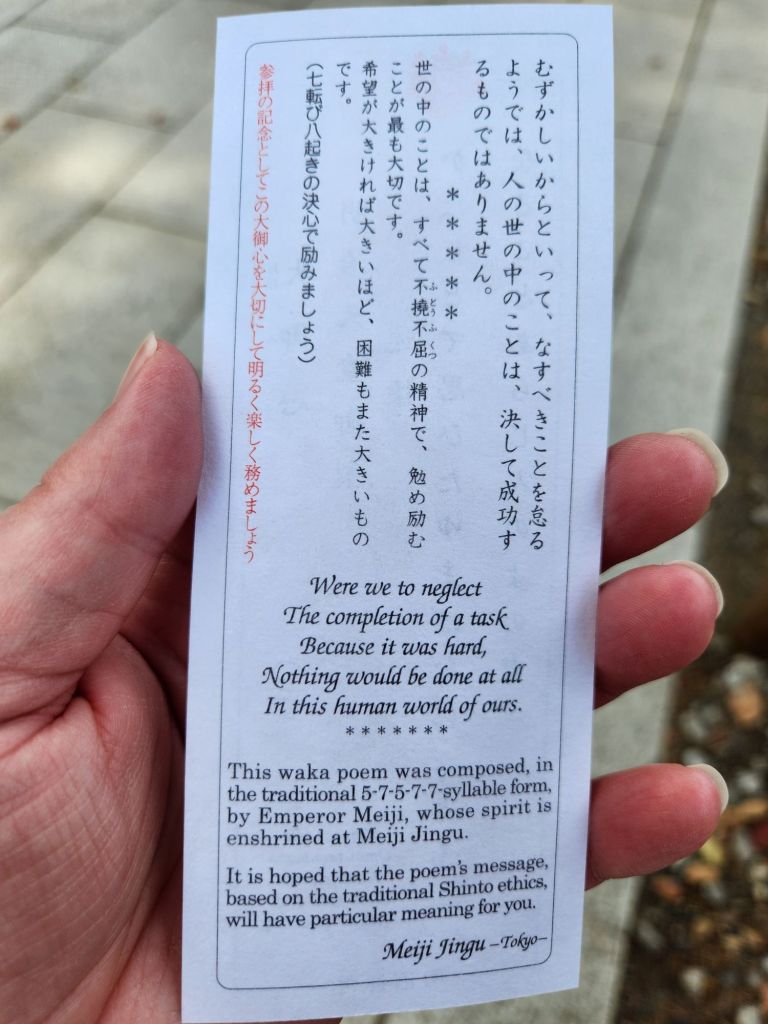 むずかしいからといって、なすべきことを怠る
ようでは、人の世の中のことは、決して成功す
るものではありません。
＊＊＊＊＊
世の中のことは、すべて不撓不屈の精神で、勉め励む
ふとうふくつ
ことが最も大切です。
希望が大きければ大きいほど、困難もまた大きいもの
です。
（七転び八起きの決心で励みましょう）
参拝の記念としてこの大御心を大切にして明るく楽しく務めましょう
Were we to neglect
The completion of a task
Because it was hard,
Nothing would be done at all
In this human world of ours.
*******
This waka poem was composed, in
the traditional 5-7-5-7-7-syllable form,
by Emperor Meiji, whose spirit is
enshrined at Meiji Jingu.
It is hoped that the poem's message,
based on the traditional Shinto ethics,
will have particular meaning for you.
Meiji Jingu –Tokyo–